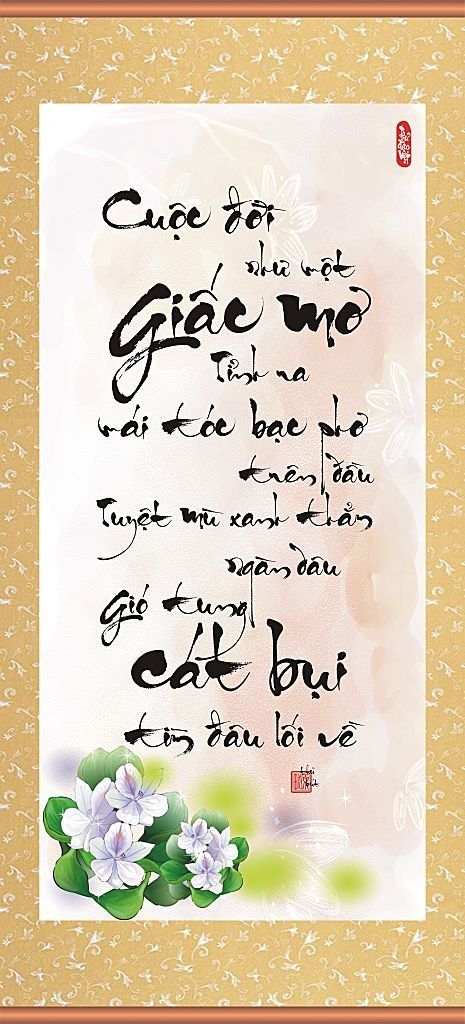 Cuộc đời
như một
Giấc mơ
Tỉnh ra
mái tóc bạc phơ
trên đầu
Tuyệt mù xanh thẳm
ngàn dâu
Gió tung
cát bụi
tìm đâu lối về